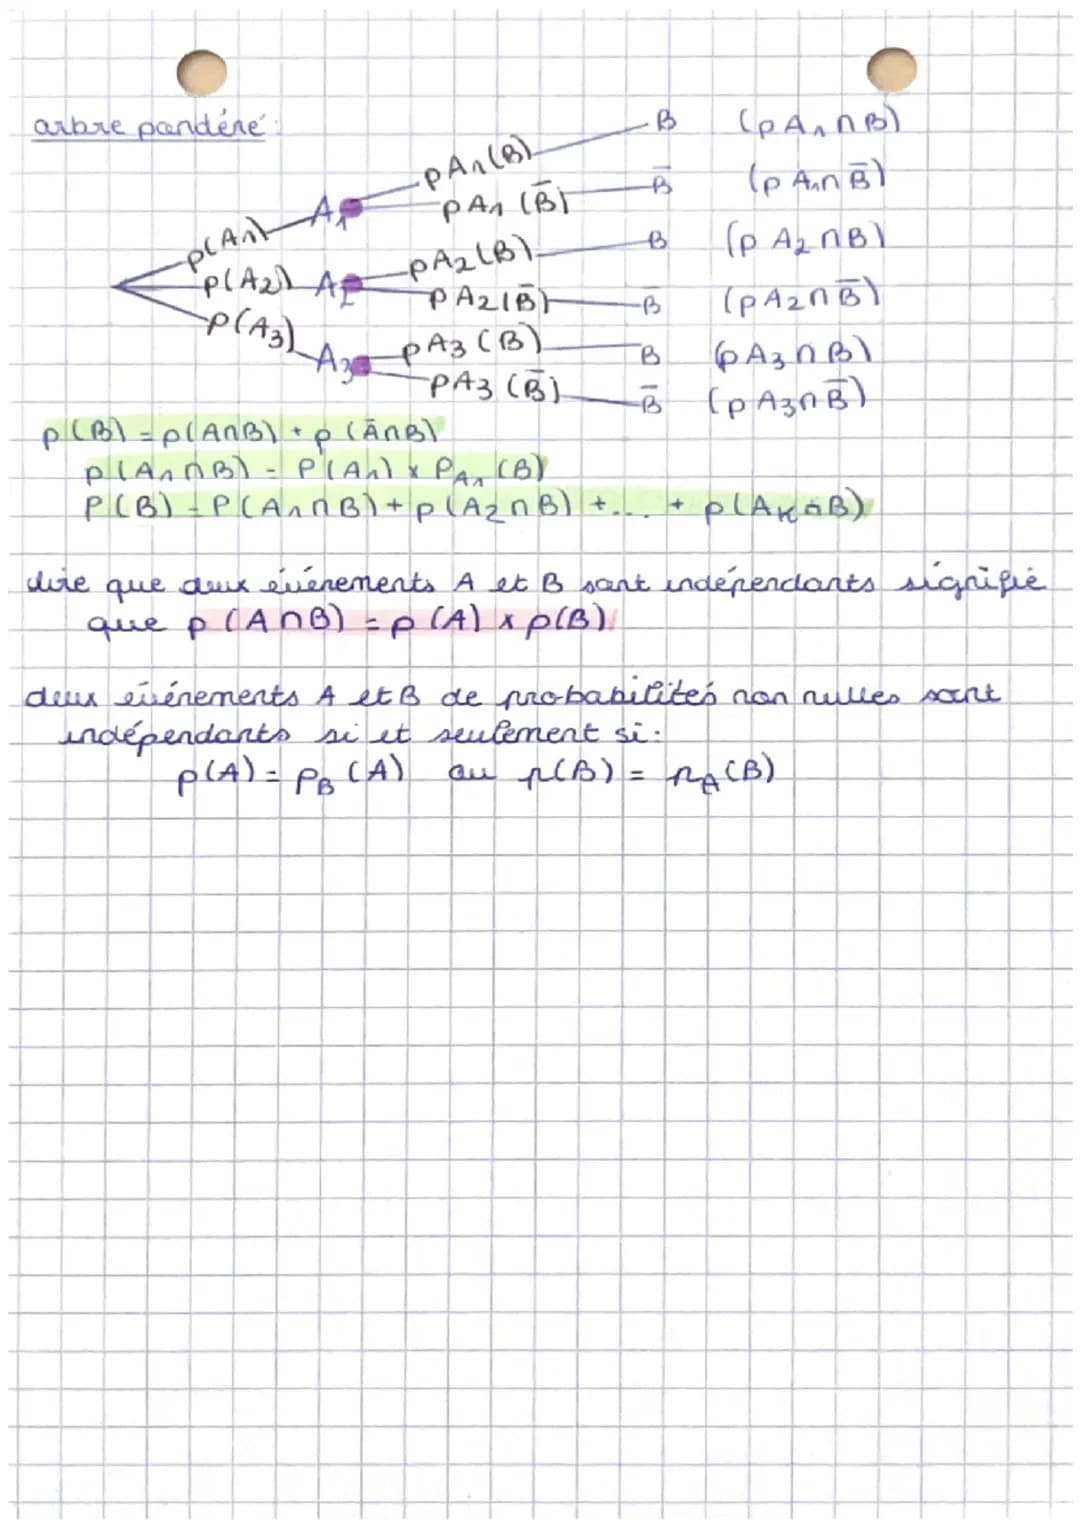 arbre pondéré :
pA₁(B) B (pA₁∩B)
A₁ pA₁(B̄) B̄ (pA₁∩B̄)
p(A₁) pA₂(B) B (pA₂∩B)
p(A₂) A₂ pA₂(B̄) B̄ (pA₂∩B̄)
p(A₃) A₃ pA₃(B) B (pA₃∩B)
pA₃(B̄) B̄ (pA₃∩B̄)
p(B) = p(A∩B) + p(Ā∩B)
p(A₁∩B) = P(A₁) x P_A₁(B)
P(B) = P(A₁∩B) + p(A₂∩B) + ... + p(A_K∩B)
dire que deux événements A et B sont indépendants signifie
que p(A∩B) = p(A) x p(B)
deux événements A et B de probabilités non nulles sont
indépendants si et seulement si :
p(A) = p_B(A) ou p(B) = p_A(B)